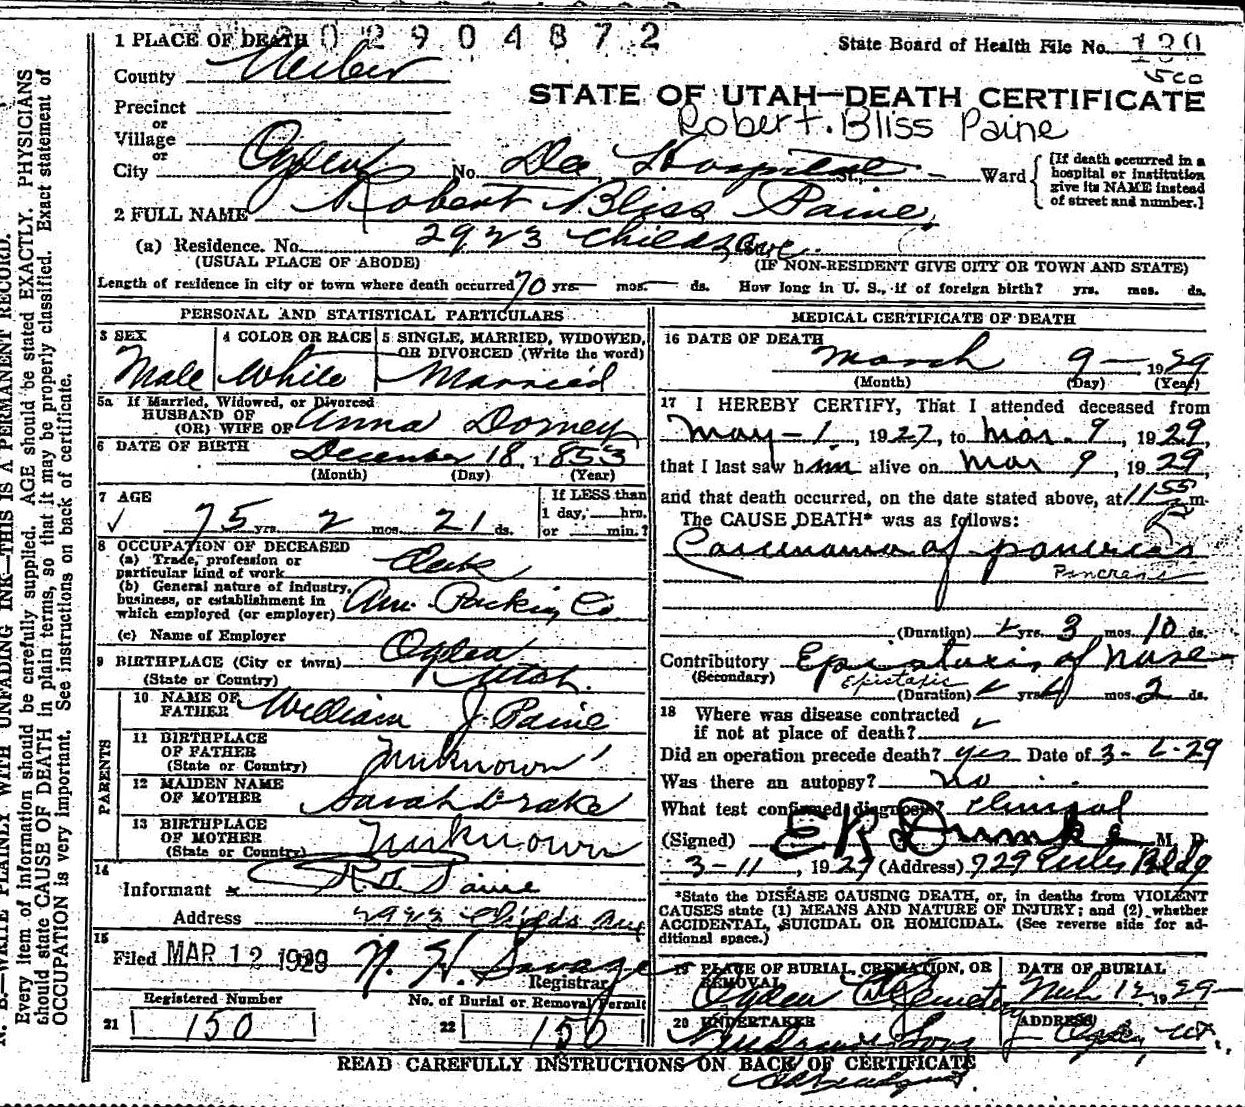 2 0 2 9 0 4 8 7 2
1 PLACE OF DEATH
State Board of Health File No. 130
500
County Weber
STATE OF UTAH—DEATH CERTIFICATE
Robert Bliss Paine
Precinct
or
Village
or
City Ogden No. Dee Hospital St., - Ward
[If death occurred in a hospital or institution give its NAME instead of street and number.]
2 FULL NAME Robert Bliss Paine
(a) Residence. No. 2923 Childs Ave
(USUAL PLACE OF ABODE) (IF NON-RESIDENT GIVE CITY OR TOWN AND STATE)
Length of residence in city or town where death occurred 70 yrs. — mos. — ds. How long in U. S., if of foreign birth? yrs. mos. ds.
PERSONAL AND STATISTICAL PARTICULARS
3 SEX Male
4 COLOR OR RACE White
5 SINGLE, MARRIED, WIDOWED, OR DIVORCED (Write the word) Married
5a If Married, Widowed, or Divorced
HUSBAND OF
(OR) WIFE OF Anna Dorney
6 DATE OF BIRTH December 18, 1853
(Month) (Day) (Year)
7 AGE
75 yrs. 2 mos. 21 ds.
If LESS than
1 day, hrs.
or min.?
8 OCCUPATION OF DECEASED
(a) Trade, profession or
particular kind of work Clerk
(b) General nature of industry,
business, or establishment in
which employed (or employer) Am. Packing Co.
(c) Name of Employer
9 BIRTHPLACE (City or town) Ogden
(State or Country) Utah.
PARENTS
10 NAME OF
FATHER William J. Paine
11 BIRTHPLACE
OF FATHER
(State or Country) Unknown
12 MAIDEN NAME
OF MOTHER Sarah Drake
13 BIRTHPLACE
OF MOTHER
(State or Country) Unknown
14
Informant x Paine
Address 2923 Childs Ave
15
Filed MAR 12 1929 Savage
Registrar
Registered Number
21 150
No. of Burial or Removal Permit
22 150
MEDICAL CERTIFICATE OF DEATH
16 DATE OF DEATH
March 9— 1929
(Month) (Day) (Year)
17 I HEREBY CERTIFY, That I attended deceased from
May—1, 1927, to Mar. 9, 1929,
that I last saw him alive on Mar 9, 1929,
and that death occurred, on the date stated above, at 11 55 P m.
The CAUSE DEATH* was as follows:
Carcinoma of pancreas
Pancreas
(Duration) yrs. 3 mos. 10 ds.
Contributory Epistaxis of Nose
(Secondary) Epistaxis
(Duration) yrs. mos. 2 ds.
18 Where was disease contracted
if not at place of death?
Did an operation precede death? yes Date of 3-6-29
Was there an autopsy? no
What test confirmed diagnosis? Clinical
(Signed) E R Dumke M. D.
3-11, 1929 (Address) 729 Eccles Bldg
*State the DISEASE CAUSING DEATH, or, in deaths from VIOLENT
CAUSES state (1) MEANS AND NATURE OF INJURY; and (2) whether
ACCIDENTAL, SUICIDAL OR HOMICIDAL. (See reverse side for ad-
ditional space.)
19 PLACE OF BURIAL, CREMATION, OR
REMOVAL
Ogden City Cemetery
DATE OF BURIAL
Mch 12, 1929—
20 UNDERTAKER
Sons
ADDRESS
Ogden, Ut.
READ CAREFULLY INSTRUCTIONS ON BACK OF CERTIFICATE
N. B.—WRITE PLAINLY WITH UNFADING INK—THIS IS A PERMANENT RECORD.
Every item of information should be carefully supplied. AGE should be stated EXACTLY. PHYSICIANS
should state CAUSE OF DEATH in plain terms, so that it may be properly classified. Exact statement of
OCCUPATION is very important. See instructions on back of certificate.